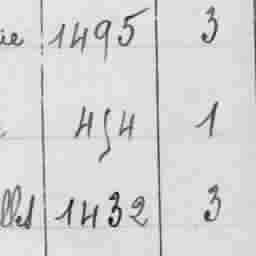 ie 1495 3
454 1
lles 1432 3